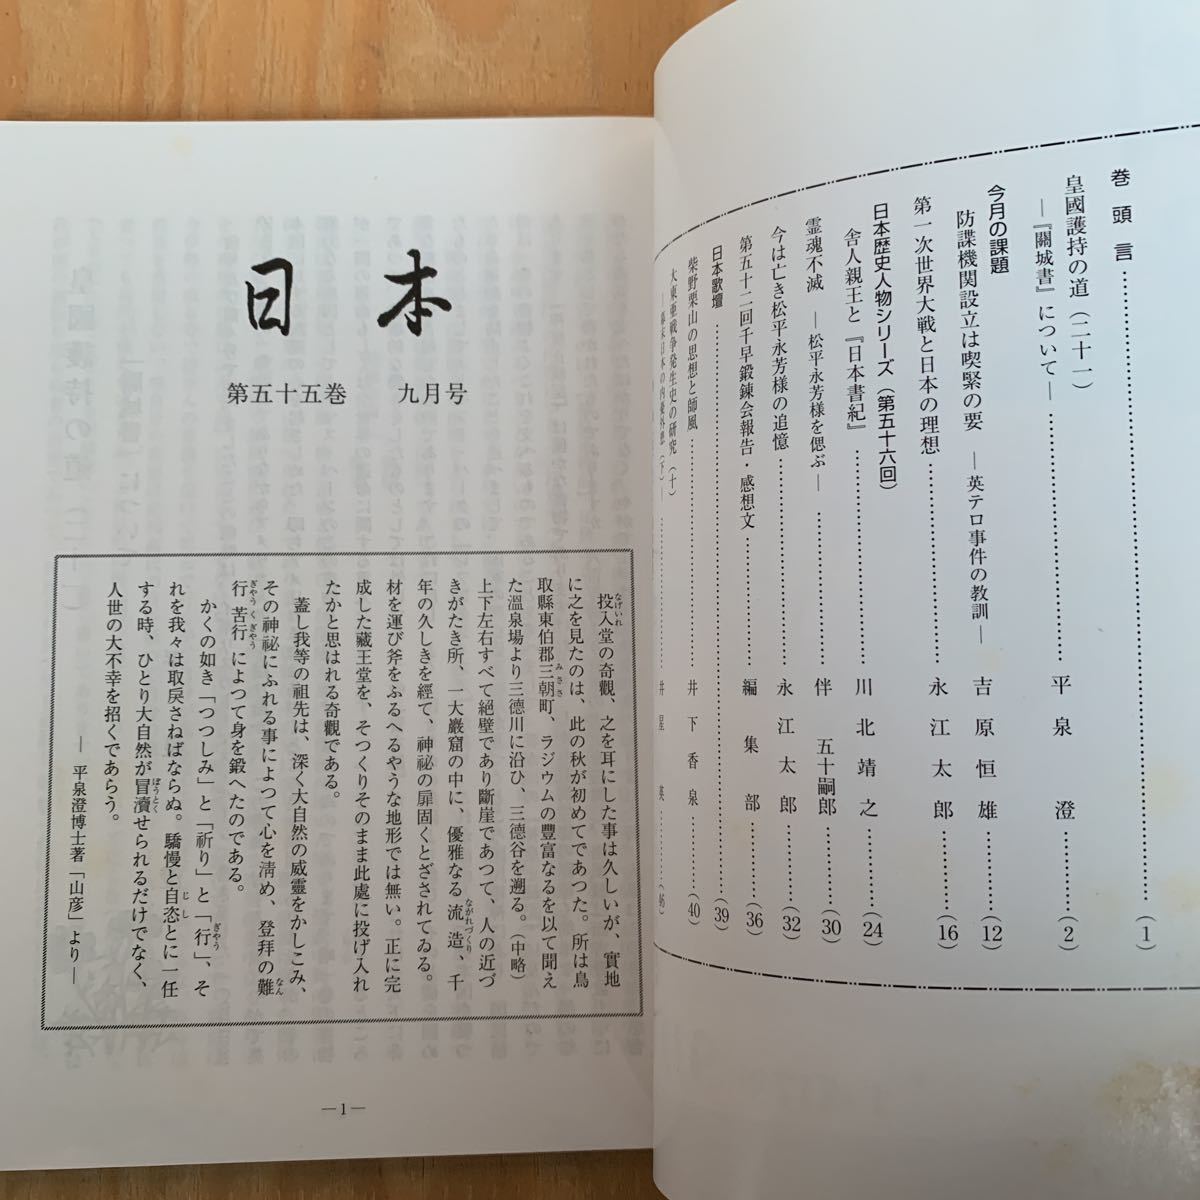 巻頭言……(1)
皇國護持の道（二十一）
―『關城書』について―……平泉澄……(2)
今月の課題
防諜機関設立は喫緊の要 ―英テロ事件の教訓―吉原恒雄……(12)
第一次世界大戦と日本の理想……永江太郎……(16)
日本歴史人物シリーズ（第五十六回）
舎人親王と『日本書紀』……川北靖之……(24)
霊魂不滅 ―松平永芳様を偲ぶ―……伴五十嗣郎……(30)
今は亡き松平永芳様の追憶……永江太郎……(32)
第五十二回千早鍛錬会報告・感想文……編集部……(36)
日本歌壇……(39)
柴野栗山の思想と師風……井下香泉……(40)
大東亜戦争発生史の研究（十）
―幕末日本の内憂外患（下）―……(46)
日本
第五十五巻 九月号
投入堂の奇觀、之を耳にした事は久しいが、實地
なげいれ
に之を見たのは、此の秋が初めてであつた。所は鳥
取縣東伯郡三朝町、ラジウムの豐富なるを以て聞え
みささ
た溫泉場より三德川に沿ひ、三德谷を遡る。（中略）
上下左右すべて絕壁であり斷崖であつて、人の近づ
きがたき所、一大巖窟の中に、優雅なる流造、千
ながれづくり
年の久しきを經て、神祕の扉固くとざされてゐる。
材を運び斧をふるへるやうな地形では無い。正に完
成した藏王堂を、そつくりそのまま此處に投げ入れ
たかと思はれる奇觀である。
蓋し我等の祖先は、深く大自然の威靈をかしこみ、
その神祕にふれる事によつて心を淸め、登拜の難
なん
行苦行によつて身を鍛へたのである。
ぎやうくぎやう
かくの如き「つつしみ」と「祈り」と「行」、そ
ぎやう
れを我々は取戾さねばならぬ。驕慢と自恣とに一任
じし
する時、ひとり大自然が冒瀆せられるだけでなく、
ぼうとく
人世の大不幸を招くであらう。
―平泉澄博士著「山彦」より―
―1―